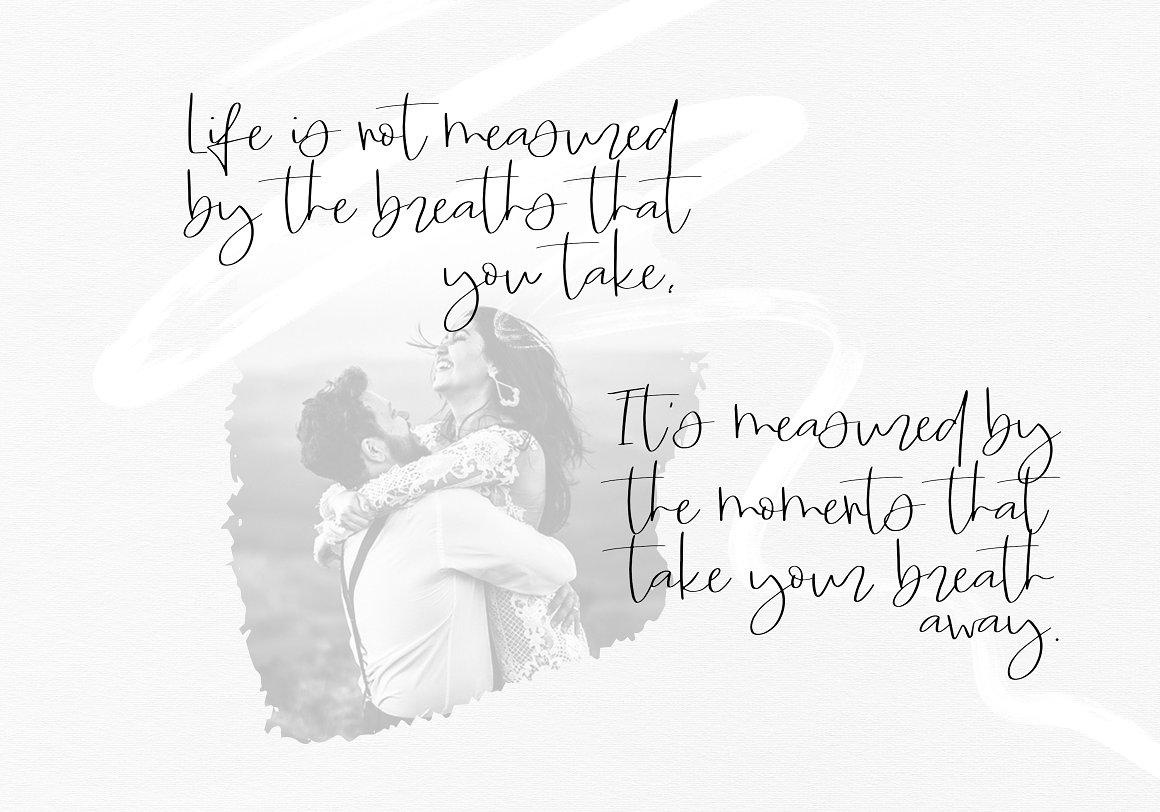 Life is not measured
by the breaths that
you take,
It's measured by
the moments that
take your breath
away.